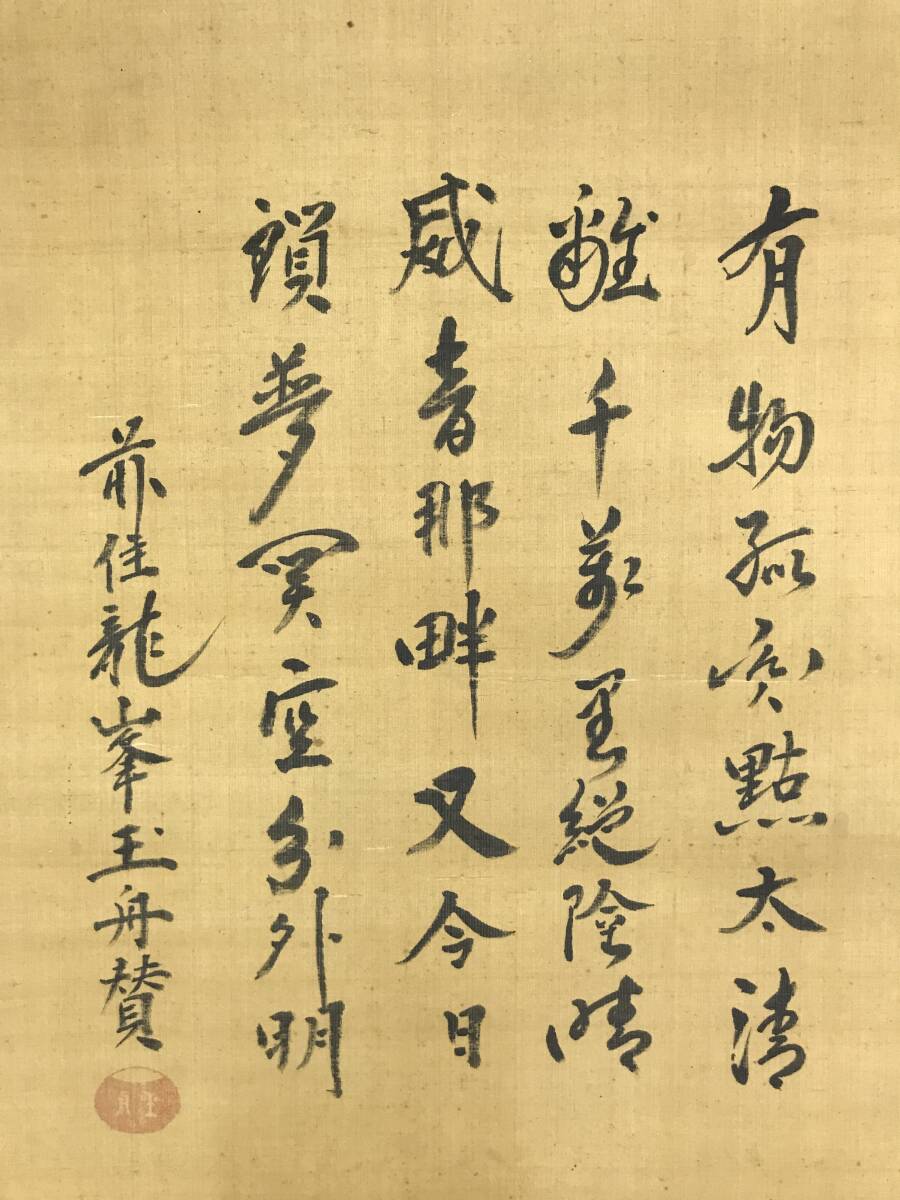 有物孤突點太清
離千萬里絕陰晴
威音那畔又今日
夢関空分外明
前住龍峯玉舟賛